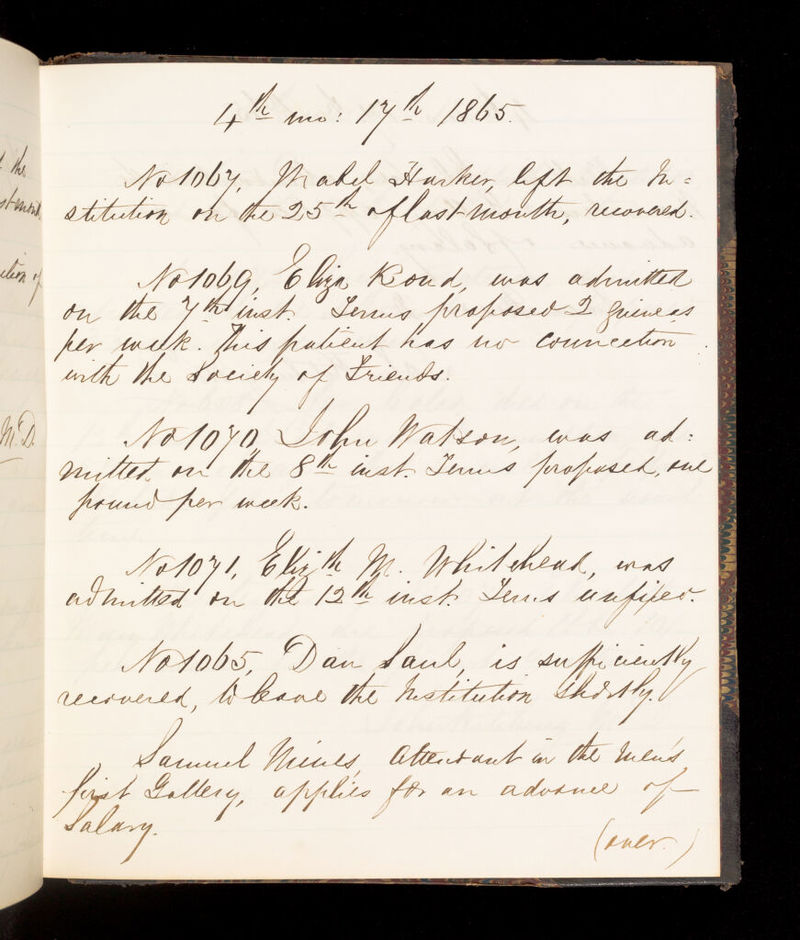 4th mo: 17th 1865.
No 1067, Mabel Harker, left the In=
stitution on the 25th of last month, recovered.
No 1069, Eliza Rond, was admitted
on the 7th inst. Terms proposed 2 guineas
per week. This patient has no connection
with the Society of Friends.
No 1070 John Watson, was ad:
mitted on the 8th inst. Terms proposed, one
pound per week.
No 1071, Elizth M. Whitehead, was
admitted on the 12th inst. Terms unfixed.
No 1065, Dan Saul, is sufficiently
recovered, to leave the Institution shortly.
Samuel attendant in the men's
first Gallery, applies for an advance of
Salary.
(over.)
the
M.D.